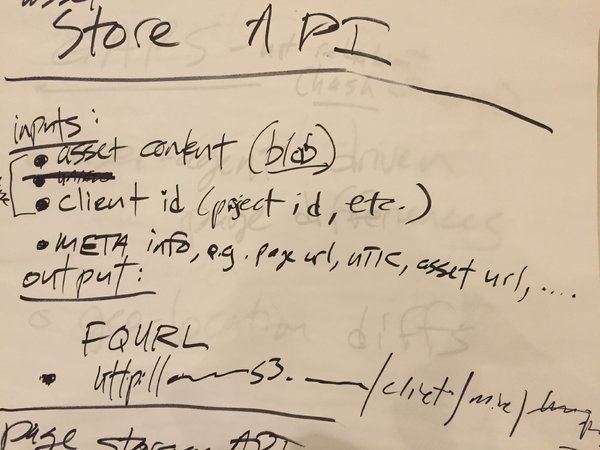 Store API
inputs:
• asset content (blob)
• client id (project id, etc.)
• META info, e.g. page url, UTC, asset url, ....
output:
FQURL
• http:// S3. /client/
page storage API